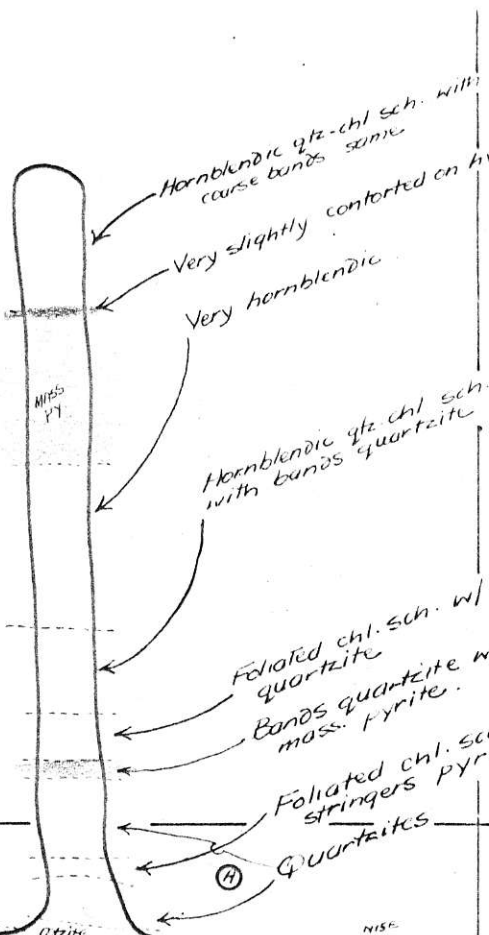 Hornblendic qtz-chl sch. with
course bands same
Very slightly contorted on
Very hornblendic
MASS
PY
Hornblendic qtz chl sch.
with bands quartzite
Foliated chl. sch. w/
quartzite
Bands quartzite w
mass. pyrite.
Foliated chl. sc
stringers pyr
Quartzites
H
Qtzite